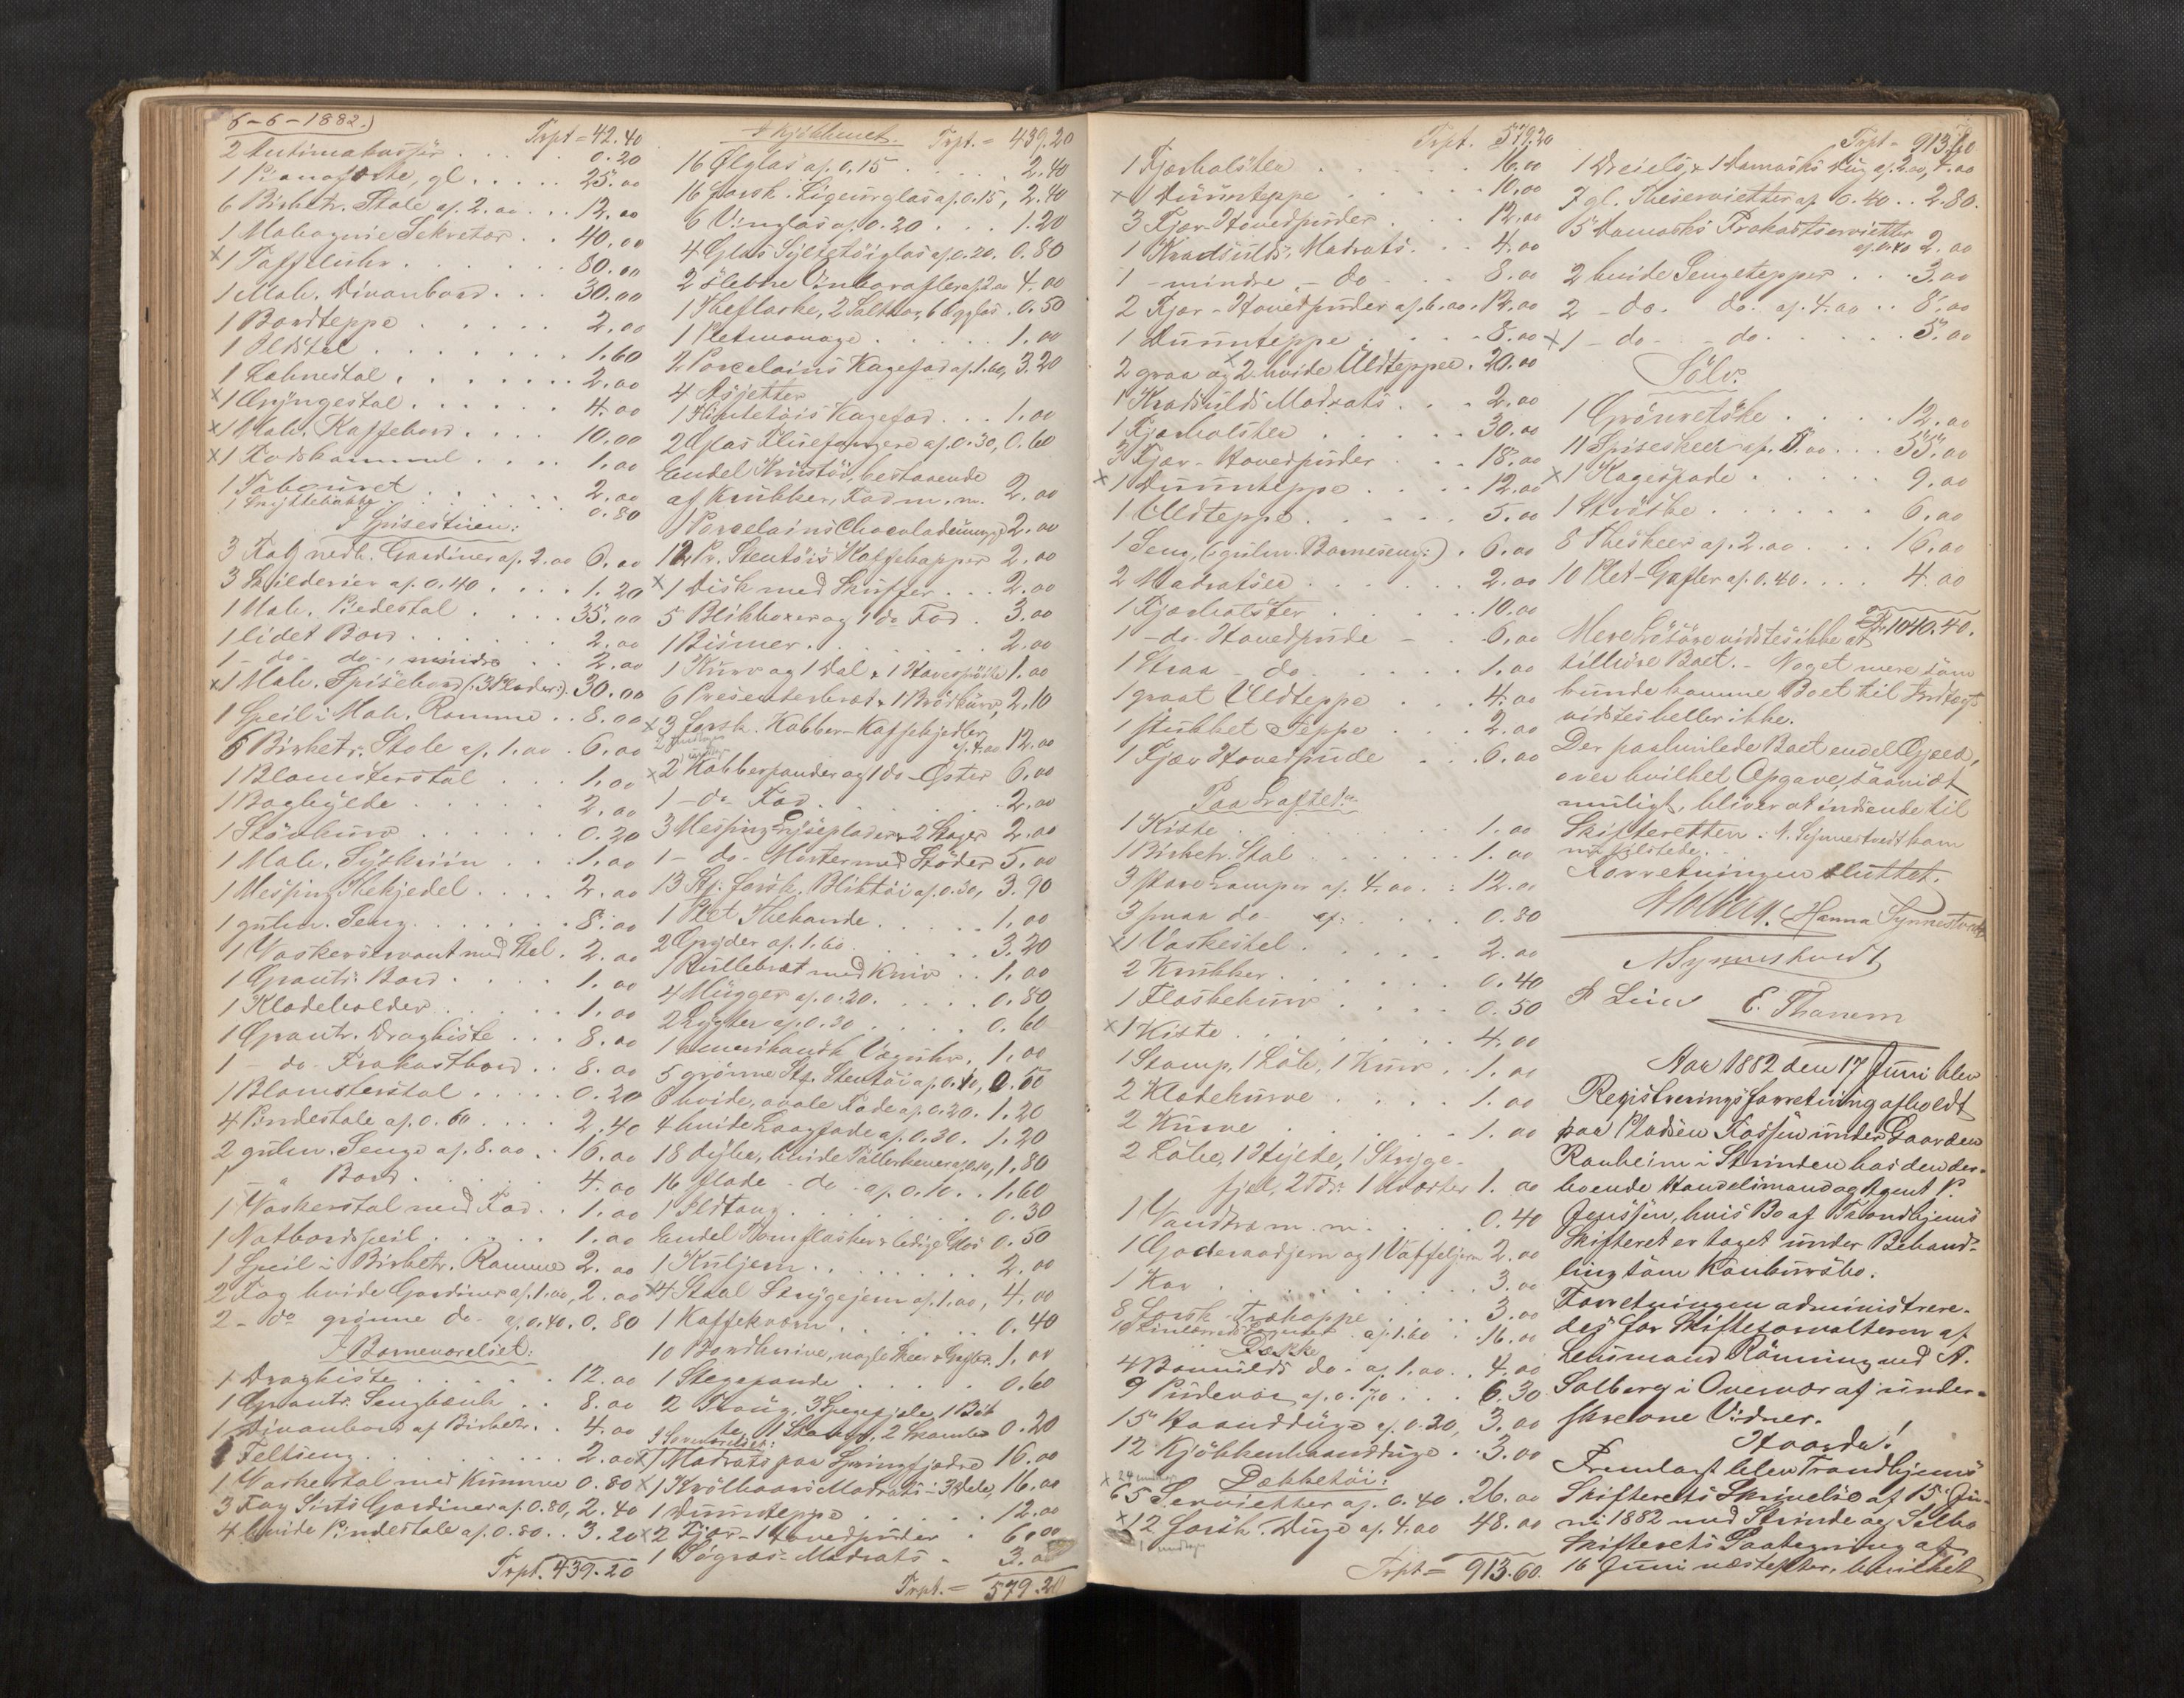 6-6-1882.)
Trpt = 42.40
2 Antimakasser . . 0.20
1 Pianoforte, gl. . . . . 25.00
6 Birketr. Stole af. 2.00 . . . 12.00
1 Mahognie Sekretær . . 40.00
x 1 Taffeluhr . . . . . . 80.00
1 Mah. Divanbord . . . 30.00
1 Bordteppe . . . . . 2.00
1 Ildstel . . . . . . . 1.60
1 Lænestol . . . . . . . 2.00
x 1 Gyngestol . . . . . . 4.00
x 1 Mah. Kaffebord . . . . 10.00
x 1 Fodskammel . . . . 1.00
1 Tabouret . . . . . . 2.00
1 Spyttebakke . . . . . 0.80
I Spisestuen:
3 Fag nedh. Gardiner af. 2.00 6.00
3 Skilderier af. 0.40 . . . . 1.20
1 Mah. Piedestal . . . . 35.00
1 lidet Bord . . . . . . 2.00
1 - do - do -, mindre . . 2.00
x 1 Mah. Spisebord (: 3 Plader:). 30.00
1 Speil i Mah. Ramme . . 8.00
6 Birketr. Stole af. 1.00 . 6.00
1 Blomsterstol . . . 1.00
1 Boghylde . . . . . 2.00
1 Støvkurv . . . . . . 0.20
1 Mah. Syskrin . . . 1.00
1 Messing Thekjedel . . . . 2.00
1 gulm. Seng . . . . . . 8.00
1 Vaskerservant med Stel . 2.00
1 Grantr. Bord . . . . 1.00
1 Klædeholder . . . . . 1.00
1 Grantr. Dragkiste . . . 8.00
1 - do - Frokostbord . . 8.00
1 Blomsterstol . . . . . 0.20
4 Pindestole af. 0.60 . . . . 2.40
2 gulm. Senge af. 8.00 . . 16.00
1 - " Bord . . . . . . 4.00
1 Vaskerstol med Fad . . 1.00
1 Natbordspeil . . . . . 1.00
1 Speil i Birketr. Ramme 2.00
2 Fag hvide Gardiner af. 1.00, 2.00
2 - do grønne do - af. 0.40. 0.80
I Barneværelset:
1 Dragkiste . . . . . . 12.00
1 Grantr. Sengbænk . . 8.00
1 Divanbord af Birketr. . 4.00
1 Feltseng . . . . . . . 2.00
1 Vaskerstol med Kumme 0.80
3 Fag Sirts Gardiner af. 0.80, 2.40
4 hvide Pindestole af. 0.80 . . 3.20
Trpt. 439.20
I Kjøkkenet. Trpt. = 439.20
16 Ølglas af. 0.15 . . . . . 2.40
16 forsk. Ligeurglas af. 0.15, 2.40
6 Vinglas af. 0.20 . . . 1.20
4 Glas Syltetøiglas af. 0.20. 0.80
2 slebne Vinkarafler af. 2.00 4.00
1 Theflaske, 2 Saltkar, 6 Ægglas . 0.50
1 Pletmenage . . . . . 1.00
2 Porcelains Kagefad af. 1.60, 3.20
4 Asjetter
1 Flintetøis Kagefad . . . 1.00
2 Glas Fluefangere af. 0.30, 0.60
Endel Krustøi, bestaaende
af Krukker, Fad m. m. 2.00
1 Porcelains Chocolademugge 2.00
12 Pr. Stentøis Kaffekopper 2.00
x 1 Disk med Skuffer . . . 2.00
5 Blikboxer og 1 do Fad . 3.00
1 Bismer . . . . . . . 2.00
1 Kurv og 1 Dol & 1 Haresprøite 1.00
6 Presenterbret & 1 Brødkurv, 2.10
x 3 forsk. Kobber-Kaffekjedler
af. 4.00 12.00
x 2 Kobberpander og 1 do - Øster 6.00
1 - do Fad . . . . . . . 2.00
3 Messing Lyseplader & 2 Stager 2.00
1 - do - Morter med Støder 5.00
13 Stk. forsk. Bliktøi af. 0.30, 3.90
1 Plet Thekande . . . . . 1.00
2 Gryder af. 1.60 . . . . . 3.20
1 Rullebræt med Kniv . . 1.00
4 Mugger af. 0.20. . . . . 0.80
2 Lygter af. 0.30 . . . . 0.60
1 amerikansk Væguhr. 1.00
5 grønne Stk. Stentøi af. 0.10, 0.50
6 hvide, ovale Fade af. 0.20. 1.20
4 hvide Laagfade af. 0.30. 1.20
18 dybe, hvide Tallerkener af. 0.10, 1.80
16 flade - do - af. 0.10. . 1.60
1 Ildtang . . . . . . . . 0.30
Endel Tomflasker & ledige Glas 0.50
1 Kuljern . . . . . . . 2.00
x 4 Staal Strygejern af. 1.00, 4.00
1 Kaffekværn . . . . . . 0.40
10 Bordknive, nogle Skeer & Gafler. 1.00
1 Stegepande . . . . . 0.60
2 Traug, 3 Spegefjele, 1 Bøt
te, 1 Stamp, 2 Skamler 0.20
I Soveværelset:
x 1 Madrats paa Springfjædre 16.00
x 1 Krølhaars Madrats i 3 Dele, 16.00
1 Dunteppe . . . . . . 12.00
x 2 Fjær-Hovedpuder . 6.00
1 Søgræs-Madrats . 3.00
Trpt. = 579.20
Trpt. 579.20
1 Fjærbolster . . . . . 16.00
x 1 Dunteppe . . . . . 10.00
3 Fjær-Hovedpuder . . . 12.00
1 Kradsulds-Madrats . . . 4.00
1 - mindre, - do . . . . 8.00
2 Fjær-Hovedpuder af. 6.00. 12.00
1 Dunteppe . . . . . 8.00
2 graa og x 2 hvide Uldtepper . 20.00
1 Kradsulds Madrats . . . 2.00
1 Fjærbolster . . . . . 30.00
3 Fjær-Hovedpuder . . . 18.00
x 1 Dunteppe . . . . . 12.00
1 Uldteppe . . . . . . 5.00
1 Seng, (: gulm. Barneseng:) . 6.00
2 Madratser . . . . . . 2.00
1 Fjærbolster . . . . . 10.00
1 - do - Hovedpude - . . 6.00
1 Straa - do . . . . . 1.00
1 graat Uldteppe . . . . 4.00
1 stukket Teppe . . . 2.00
1 Fjær Hovedpude . . . 6.00
Paa Loftet:
1 Kiste . . . . . . . 1.00
1 Birketr. Stol . . . . . 1.00
3 store Lamper af. 4.00 . : 12.00
3 smaa do - af: . . . . 0.80
x 1 Vaskestel . . . . . 2.00
2 Krukker . . . . . . 0.40
1 Flaskekurv . . . . 0.50
x 1 Kiste . . . . . . . 4.00
1 Stamp, 1 Løb, 1 Kurv . . 1.00
2 Klædekurve . . . . 1.00
2 Kurve . . . . . . 1.00
2 Løbe, 1 Hylde, 1 Stryge-
fjel, 2 Tdr: 1 Kvarter 1.00
1 Vandtrø m. m. . . . 0.40
1 Goderaadjern og 1 Vaffeljern 2.00
1 Kar . . . . . . . . . 3.00
8 forsk. Trækoppe . . . 3.00
10 Linlærreds af. 1.60 . . 16.00
4 Bomulds do - af. 1.00. . 4.00
9 Pudevar af. 0.70 . . . 6.30
15 Haandduge af. 0.20, 3.00
12 Kjøkkenhaandduge . . 3.00
Dækketøi:
x 65 Servietter af. 0.40 . 26.00
x 12 forsk. Duge af. 4.00 48.00
1 undtages
Trpt = 913.60.
Trpt = 913.60
1 Dreiels & 1 Damasks Dug af. 2.00, 4.00
7 gl. Theservietter af 0.40 . . 2.80.
5 Damasks Frokostservietter
af. 0.40 2.00
2 hvide Sengetepper . . . 3.00
2 - do - do. af. 4.00 . . 8.00
x 1 - do - - do . . . . . 5.00
Sølv:
1 Grønretske . . . . 12.00
11 Spiseskeer af. 5.00 . . . 55.00
x 1 Kagespade . . . . . 9.00
1 Strøske . . . . . . 6.00
8 Theskeer af. 2.00 . . . 16.00
10 Plet-Gafler af. 0.40. . . . 4.00
Kr. 1040.40.
Mere Løsøre vidstes ikke at
tilhøre Boet. - Noget mere som
kunde komme Boet til Indtægt
vidstes heller ikke.
Der paahvilede Boet endel Gjeld,
over hvilket Opgave, saavidt
muligt, bliver at indsende til
Skifteretten. N. Synnestvedt kom
nu tilstede.
Forretningen sluttet.
Solberg. Hanna Synnestvedt
N Synnestvedt
P Lein E. Thanem
Aar 1882 den 17 Juni blev
Registreringsforretning afholdt
paa Pladsen Fossen under Gaarden
Ranheim i Strinden hos den der-
boende Handelsmand og Agent P.
Jenssen, hvis Bo af Trondhjems
Skifteret er taget under Behand-
ling som Konkursbo.
Forretningen administrere-
des for Skifteforvalteren af
Lensmand Rønning ved A.
Solberg i Overvær af under-
skrevne Vidner.
Hvorda!
Fremlagt blev Trondhjems
Skifterets Skrivelse af 15 Ju-
ni 1882 med Strinde og Selbo
Skifterets Paategning af
16 Juni næstefter, hvilket